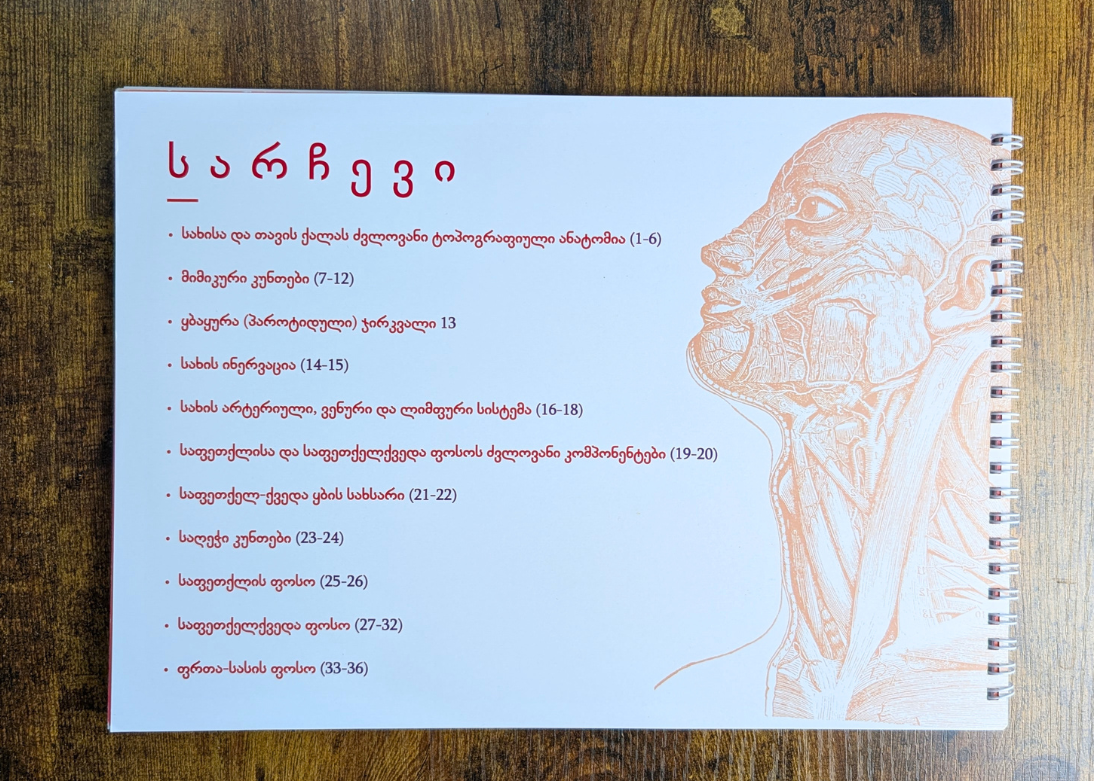 სარჩევი
• სახისა და თავის ქალას ძვლოვანი ტოპოგრაფიული ანატომია (1-6)
• მიმიკური კუნთები (7-12)
• ყბაყურა (პაროტიდული) ჯირკვალი 13
• სახის ინერვაცია (14-15)
• სახის არტერიული, ვენური და ლიმფური სისტემა (16-18)
• საფეთქლისა და საფეთქელქვედა ფოსოს ძვლოვანი კომპონენტები (19-20)
• საფეთქელ-ქვედა ყბის სახსარი (21-22)
• საღეჭი კუნთები (23-24)
• საფეთქლის ფოსო (25-26)
• საფეთქელქვედა ფოსო (27-32)
• ფრთა-სასის ფოსო (33-36)